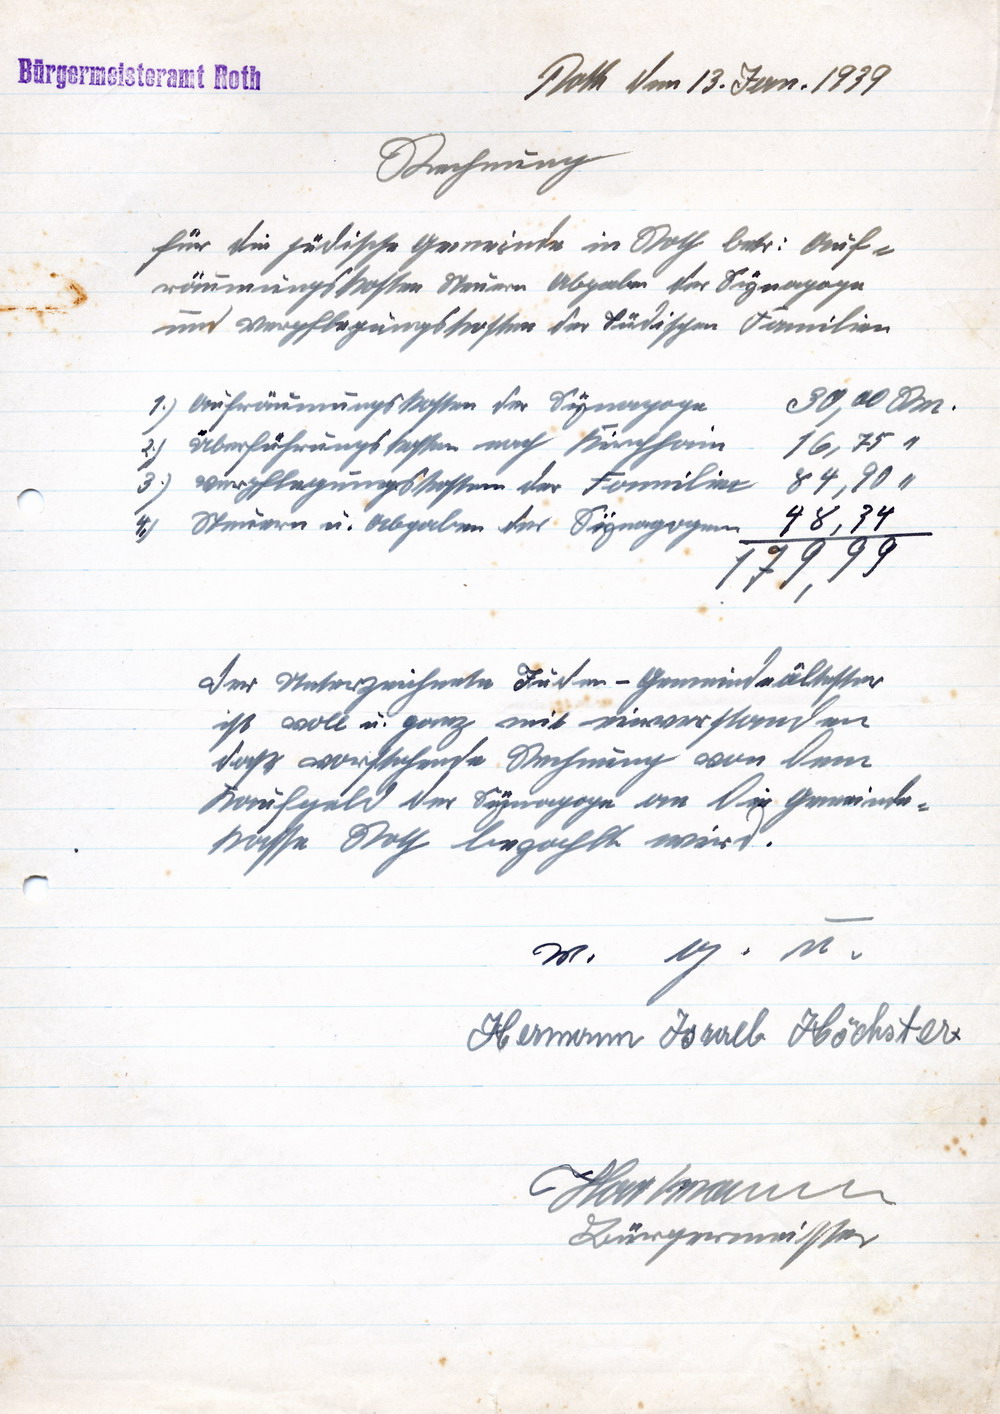 Bürgermeisteramt Roth
Roth den 13. Jan. 1939
Rechnung
für die jüdische Gemeinde in Roth betr: Auf-
räumungskosten Steuern Abgaben der Synagoge
und Verpflegungskosten der Jüdischen Familien
1.) Aufräumungskosten der Synagoge 30,00 Rm.
2.) Überführungskosten nach Kirchhain 16,75 "
3.) Verpflegungskosten der Familien 84,90 "
4.) Steuern u. Abgaben der Synagogen 48,34
179,99
Der Unterzeichnete Juden-Gemeindeältester
ist voll u. ganz mit einverstanden
daß vorstehende Rechnung von dem
Kaufgeld der Synagoge an die Gemeinde-
kasse Roth bezahlt wird.
v. g. u.
Hermann Israel Höchster
Bürgermeister